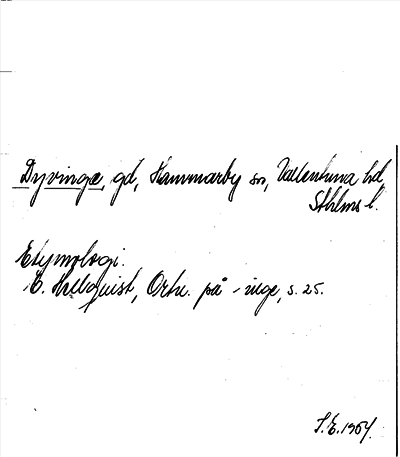 Dyvinge, gd, Hammarby sn, Vallentuna hd,
Sthlms l.
Etymologi.
E. Hellquist, Ortn. på -inge, s. 25.
S.E. 1964.